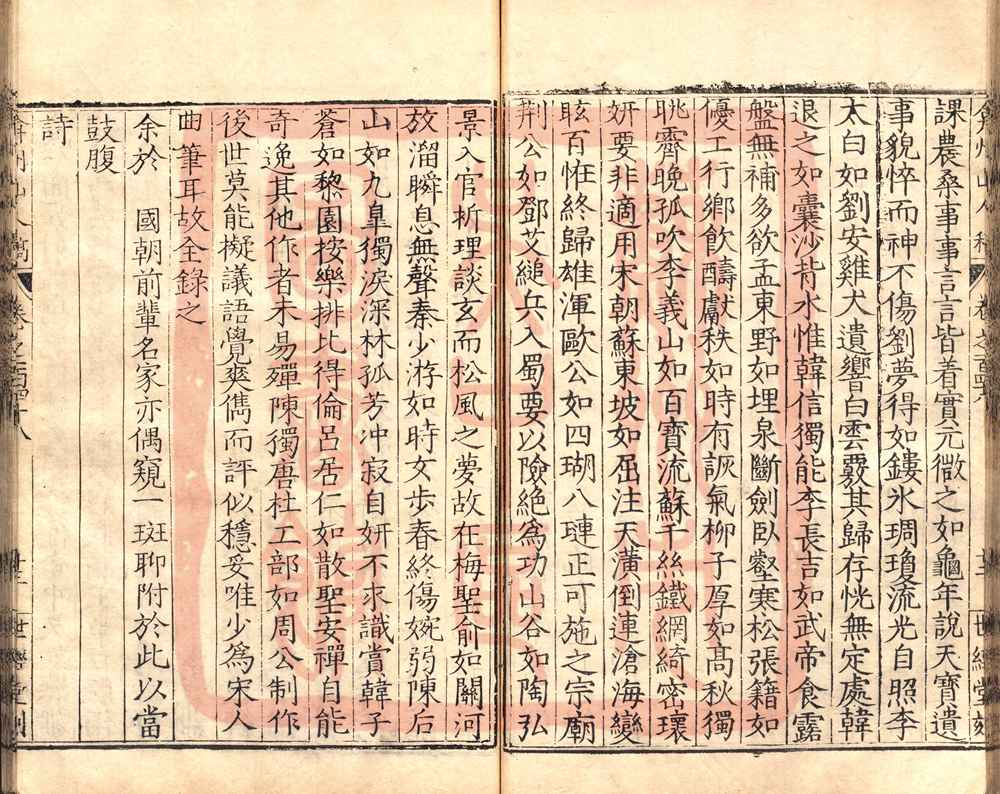 課農桑事事言言皆着實元微之如龜年說天寶遺
事貌悴而神不傷劉夢得如鏤氷琱瓊流光自照李
太白如劉安雞犬遺響白雲覈其歸存恍無定處韓
退之如囊沙背水惟韓信獨能李長吉如武帝食露
盤無補多欲孟東野如埋泉斷劍臥壑寒松張籍如
優工行鄉飲醻獻秩如時有詼氣柳子厚如髙秋獨
眺霽晚孤吹李義山如百寶流蘇千絲鐵網綺密瓌
妍要非適用宋朝蘇東坡如屈注天潢倒連滄海變
眩百恠終歸雄渾歐公如四瑚八璉正可施之宗廟
荆公如鄧艾縋兵入蜀要以險絕爲功山谷如陶弘
景入官析理談玄而松風之夢故在梅聖俞如關河
放溜瞬息無聲秦少游如時女歩春終傷婉弱陳后
山如九臯獨淚深林孤芳冲寂自妍不求識賞韓子
蒼如棃園按樂排比得倫呂居仁如散聖安禪自能
奇逸其他作者未易殫陳獨唐杜工部如周公制作
後世莫能擬議語覺爽儁而評似穩妥唯少爲宋人
曲筆耳故全錄之
余於 國朝前輩名家亦偶窺一斑聊附於此以當
鼓腹
詩